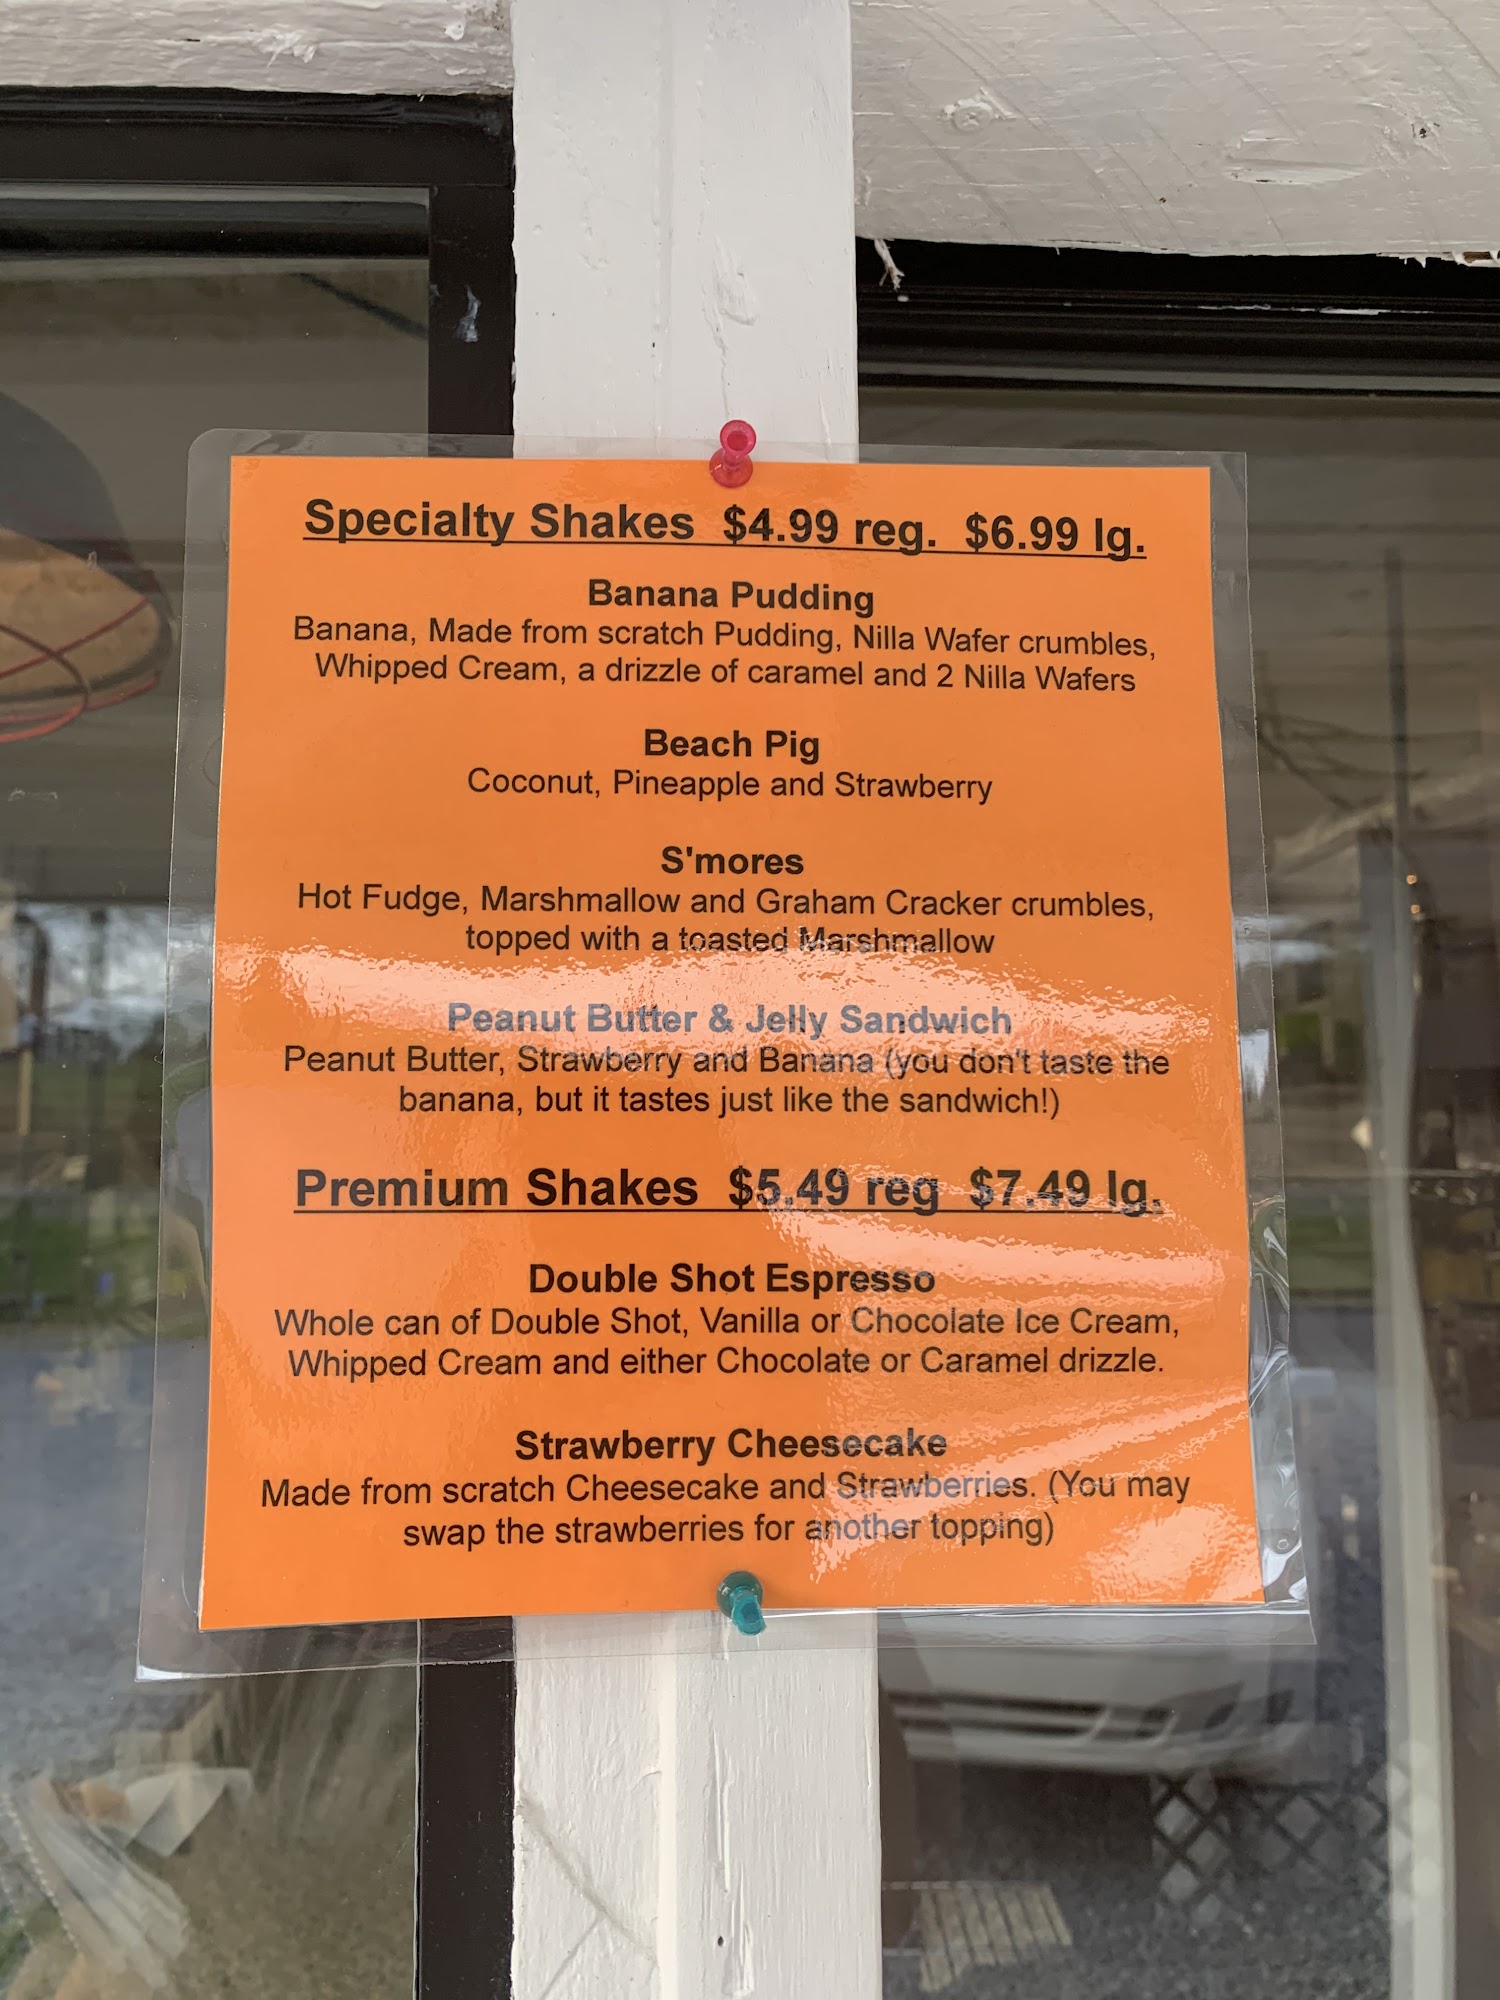 Specialty Shakes $4.99 reg. $6.99 lg.
Banana Pudding
Banana, Made from scratch Pudding, Nilla Wafer crumbles,
Whipped Cream, a drizzle of caramel and 2 Nilla Wafers
Beach Pig
Coconut, Pineapple and Strawberry
S'mores
Hot Fudge, Marshmallow and Graham Cracker crumbles,
topped with a toasted Marshmallow
Peanut Butter & Jelly Sandwich
Peanut Butter, Strawberry and Banana (you don't taste the
banana, but it tastes just like the sandwich!)
Premium Shakes $5.49 reg $7.49 lg.
Double Shot Espresso
Whole can of Double Shot, Vanilla or Chocolate Ice Cream,
Whipped Cream and either Chocolate or Caramel drizzle.
Strawberry Cheesecake
Made from scratch Cheesecake and Strawberries. (You may
swap the strawberries for another topping)